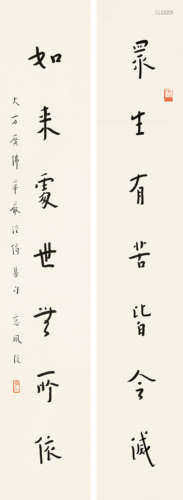 眾生有苦皆令滅
如来處世無所依
大方廣佛華嚴經偈集句